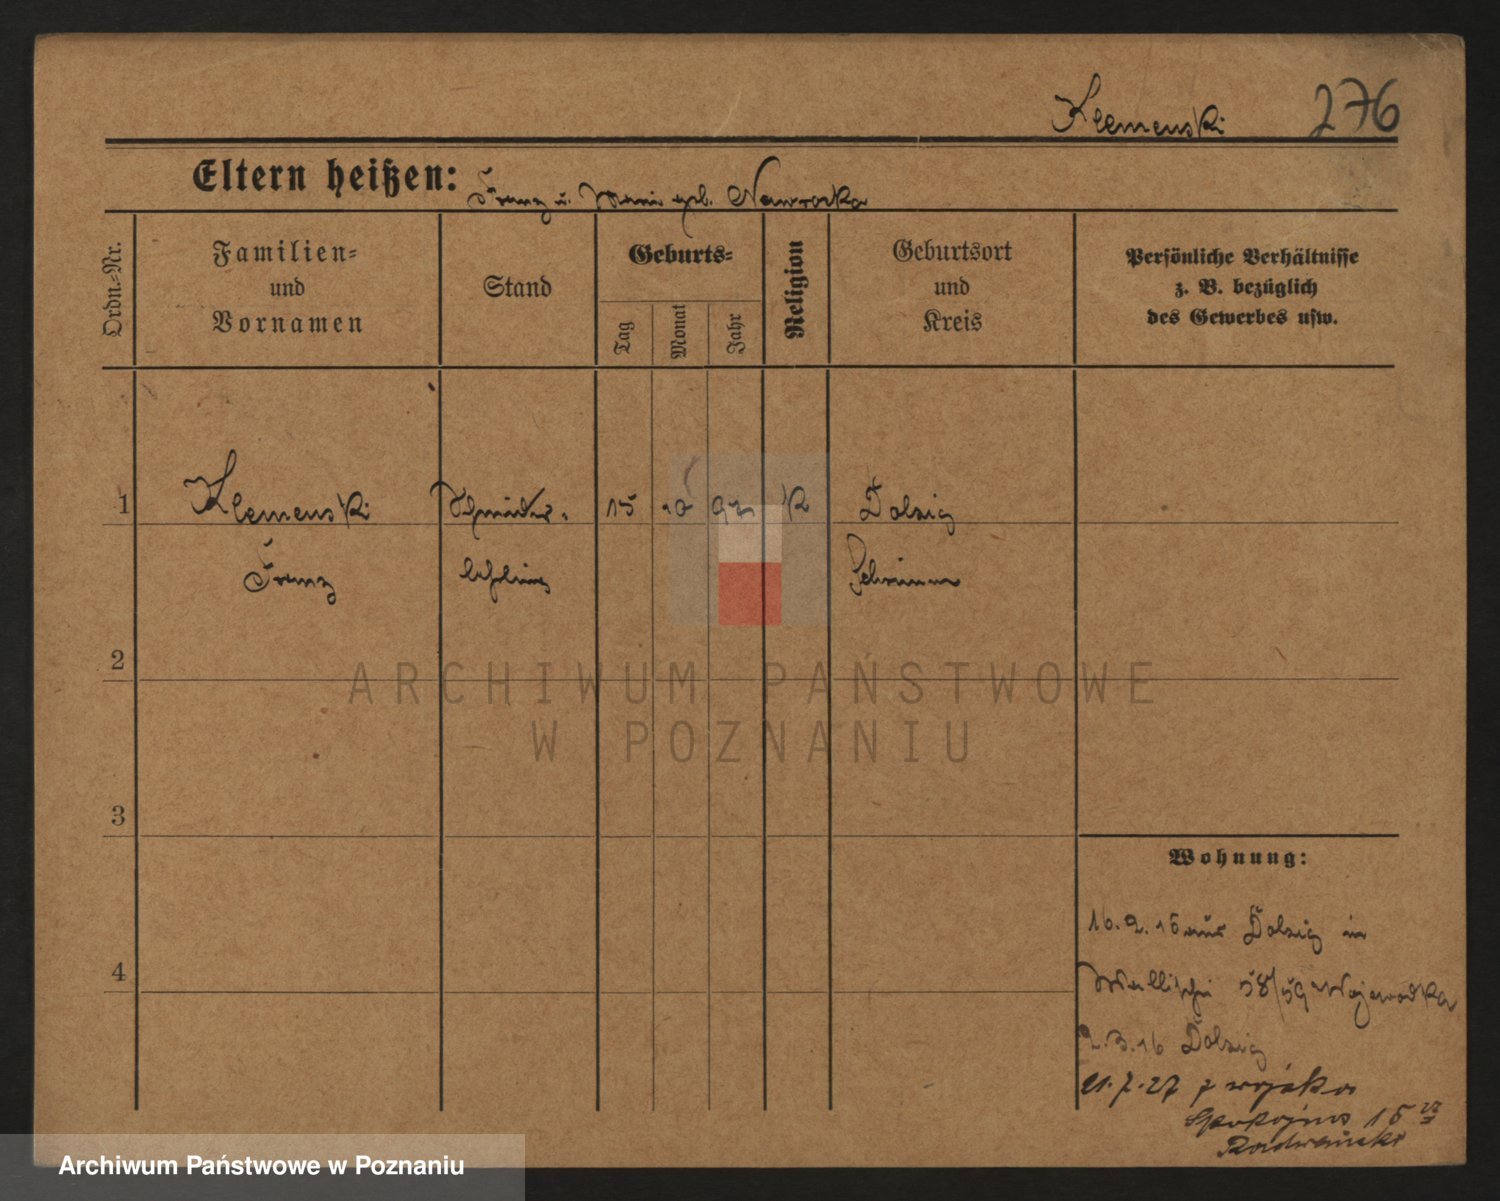 Klemenski 276
Eltern heißen: Franz u. Marie geb. Nawrocka
Ordn.-Nr.
Familien- und Vornamen
Stand
Geburts-
Tag
Monat
Jahr
Religion
Geburtsort und Kreis
Persönliche Verhältnisse z. B. bezüglich des Gewerbes usw.
1 Klemenski Schneider- 15 10 97 K Dolzig
Franz lehrling Schrimm
2
3
4
Wohnung:
16. 2. 15 aus Dolzig in
Wallischei 58/59 Wojewodka
2. 3. 16 Dolzig
21. 7. 27 z wojska
Spokojna 15
Radwański
ARCHIWUM PAŃSTWOWE
W POZNANIU
Archiwum Państwowe w Poznaniu